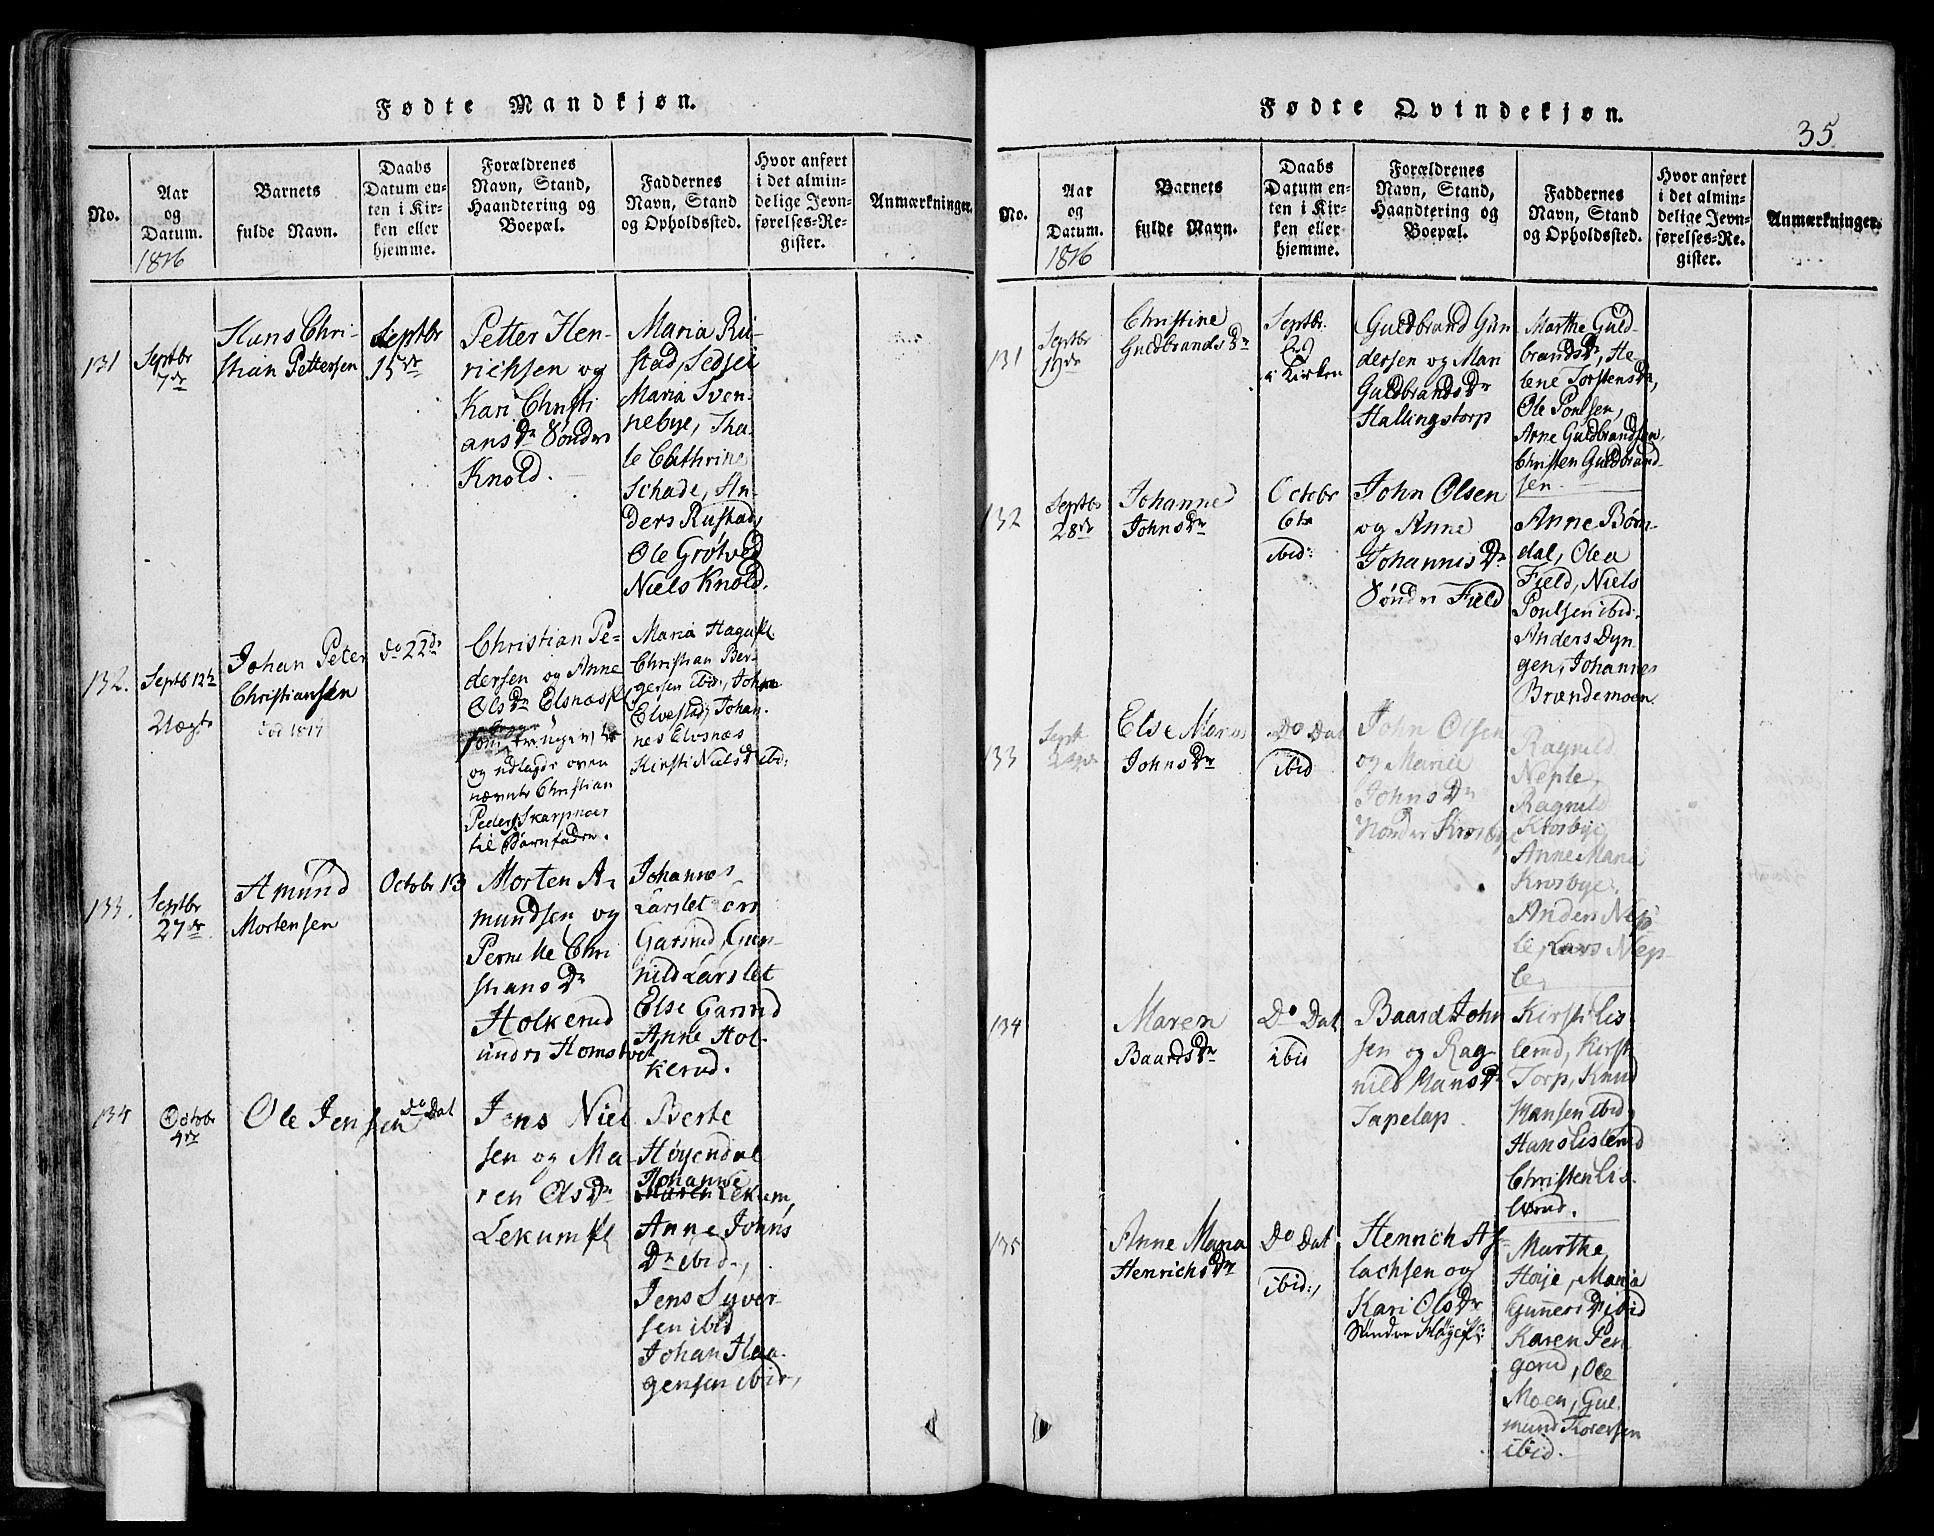 Fødte Mandkjøn.
No.
Aar
og
Datum.
1816
Barnets
fulde Navn.
Daabs
Datum en-
ten i Kir-
ken eller
hjemme.
Forældrenes
Navn, Stand,
Haandtering og
Boepæl.
Faddernes
Navn, Stand
og Opholdssted.
Hvor anført
i det almin-
delige Jevn-
førelses-Re-
gister.
Anmærkninger.
131
Septbr
7de
Hans Chri-
stian Pettersen
Septbr
15de
Petter Hen-
richsen og
Kari Christi
ans Dr Søndre
Knold.
Maria Ru-
stad, Sedsel
Maria Sven-
nebye, Tha-
le Cathrine
Schade, An-
ders Rustad,
Ole Grøtved
Niels Knold.
132.
Septb 12te
Uægte
Johan Peter
Christiansen
død 1817
do 22de
Christian Pe-
dersen og Anne
Ols Dr Elsnæs pl
og udlagde oven
nævnte Christian
Peders Skarpnær
til Barnfader.
Maria Haga pl
Christian Ber-
gersen ibid, John
Elvestad, Johan-
nes Elvsnæs
Kirsti Niels D ibid;
133.
Septbr
27de
Amund
Mortensen
Octobr 13
Morten A-
mundsen og
Pernille Chri
stians Dr
Holkerud
under Homstvet
Johannes
Larslet
Garsrud, Gun-
nild Larslet
Else Garsrud
Anne Hol-
kerud.
134
Octobr
4de
Ole Jensen
do Dat
Jens Niel
sen og Ma-
ren Ols Dr
Lekum pl
Berte
Høyendal
Johanne
Maren Lekum,
Anne Johns
Dr ibid.,
Jens Syver-
sen ibid
Johan Haa-
gensen ibid,
Fødte Qvindekjøn.
35
No.
Aar
og
Datum.
1816
Barnets
fulde Navn.
Daabs
Datum en-
ten i Kir-
ken eller
hjemme.
Forældrenes
Navn, Stand,
Haandtering og
Boepæl.
Faddernes
Navn, Stand
og Opholdssted.
Hvor anført
i det almin-
delige Jevn-
førelses-Re-
gister.
Anmærkninger.
131
Septbr
19de
Christine
Guldbrands Dr
Septbr.
29
i Kirken
Guldbrand Gun
dersen og Mari
Guldbrands Dr
Hallingstorp
Marthe Guld-
brands Dr, He-
lene Torstens Dr,
Ole Poulsen,
Arne Guldbrandsen,
Christen Guldbrand-
sen.
132
Septbr
28de
Johanne
Johns Dr
Octobr
6te
ibid:
John Olsen
og Anne
Johannis Dr
Søndre Field
Anne Bøn-
dal, Olea
Field, Niels
Poulsen ibid:
Anders Dyn-
gen, Johannes
Brændemoen
133
Septb
Else Maria
Johns Dr
Do Dat
ibid
John Olsen
og Marie
Johns Dr
Nordre Krosbye
Ragnild
Neple,
Ragnild
Krosbye,
Anne Maria
Krosbye,
Anders Nep-
le, Lars Nep-
le,
134
Maren
Baards Dr
Do Dat
ibid
Baard John
sen og Rag-
nild Hans Dr
Tapelap.
Kirsti Lis
lerud, Kirsti
Torp, Knud
Hansen ibid,
Hans Lislerud
Christen Lis-
lerud.
135
Anne Maria
Henrichs Dr
Do Dat
ibid:,
Henrich As-
lachsen og
Kari Ols Dr
Søndre Høye pl:
Marthe
Høije, Maria
Gunners D ibid
Karen Pen-
gerud, Ole
Moen, Gul-
mund Torersen
ibid.